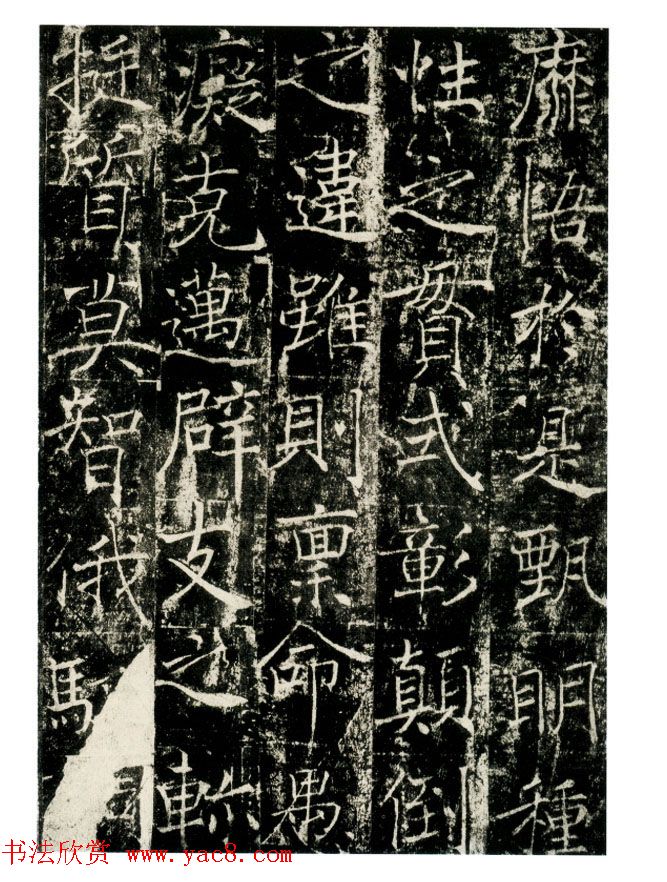 靡悟於是甄明種
性之實式彰顛倒
之違雖則稟命愚
癡克邁辟支之
挺質莫智俄
书法欣赏 www.yac8.com